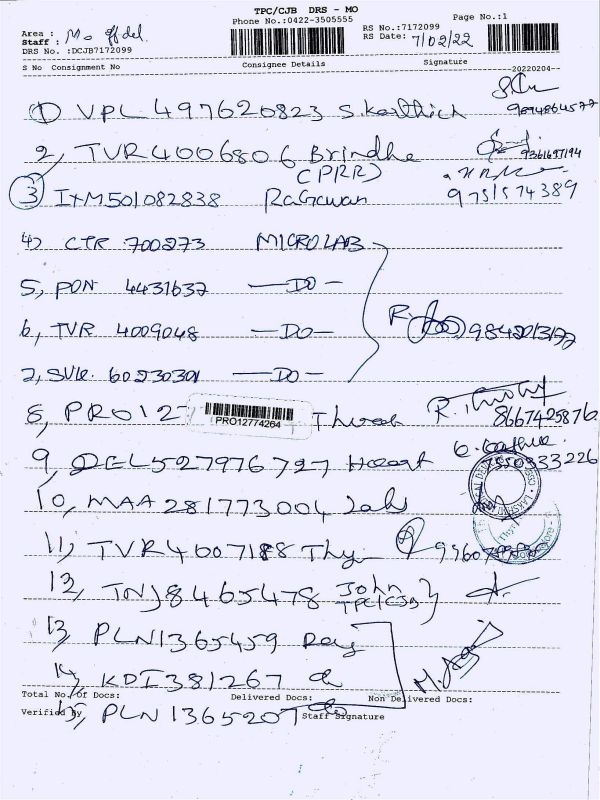 TPC/CJB DRS - MO
Phone No.:0422-3505555 Page No.:1
Area : Mo ffdel.
Staff :
RS No.:7172099
RS Date: 7/02/22
DRS No. :DCJB7172099
S No Consignment No Consignee Details Signature
---20220204--
1) VPL 497620823 S.Karthick 9894864577
2, TVR 4006806 Brindha 9361697194
(PRR)
3 IXM501082838 Ragavan 9751574389
4) CTR 700273 MICRO LAB
5, PON 4431637 —DO—
6, TVR 4009048 —DO— 9842013172
7, SVK. 60230301 —DO—
8, PRO127 PRO12774264 8667425876.
9, DEL527976727 Heart 7550333226
10, MAA 281773004
11, TVR 4007188
12, TNJ8465478 John
TPC/CJB
13, PLN1365459 Ray
14, KDI381267
Total No. Of Docs: Delivered Docs: Non Delivered Docs:
15, PLN 1365207
Verified By Staff Signature